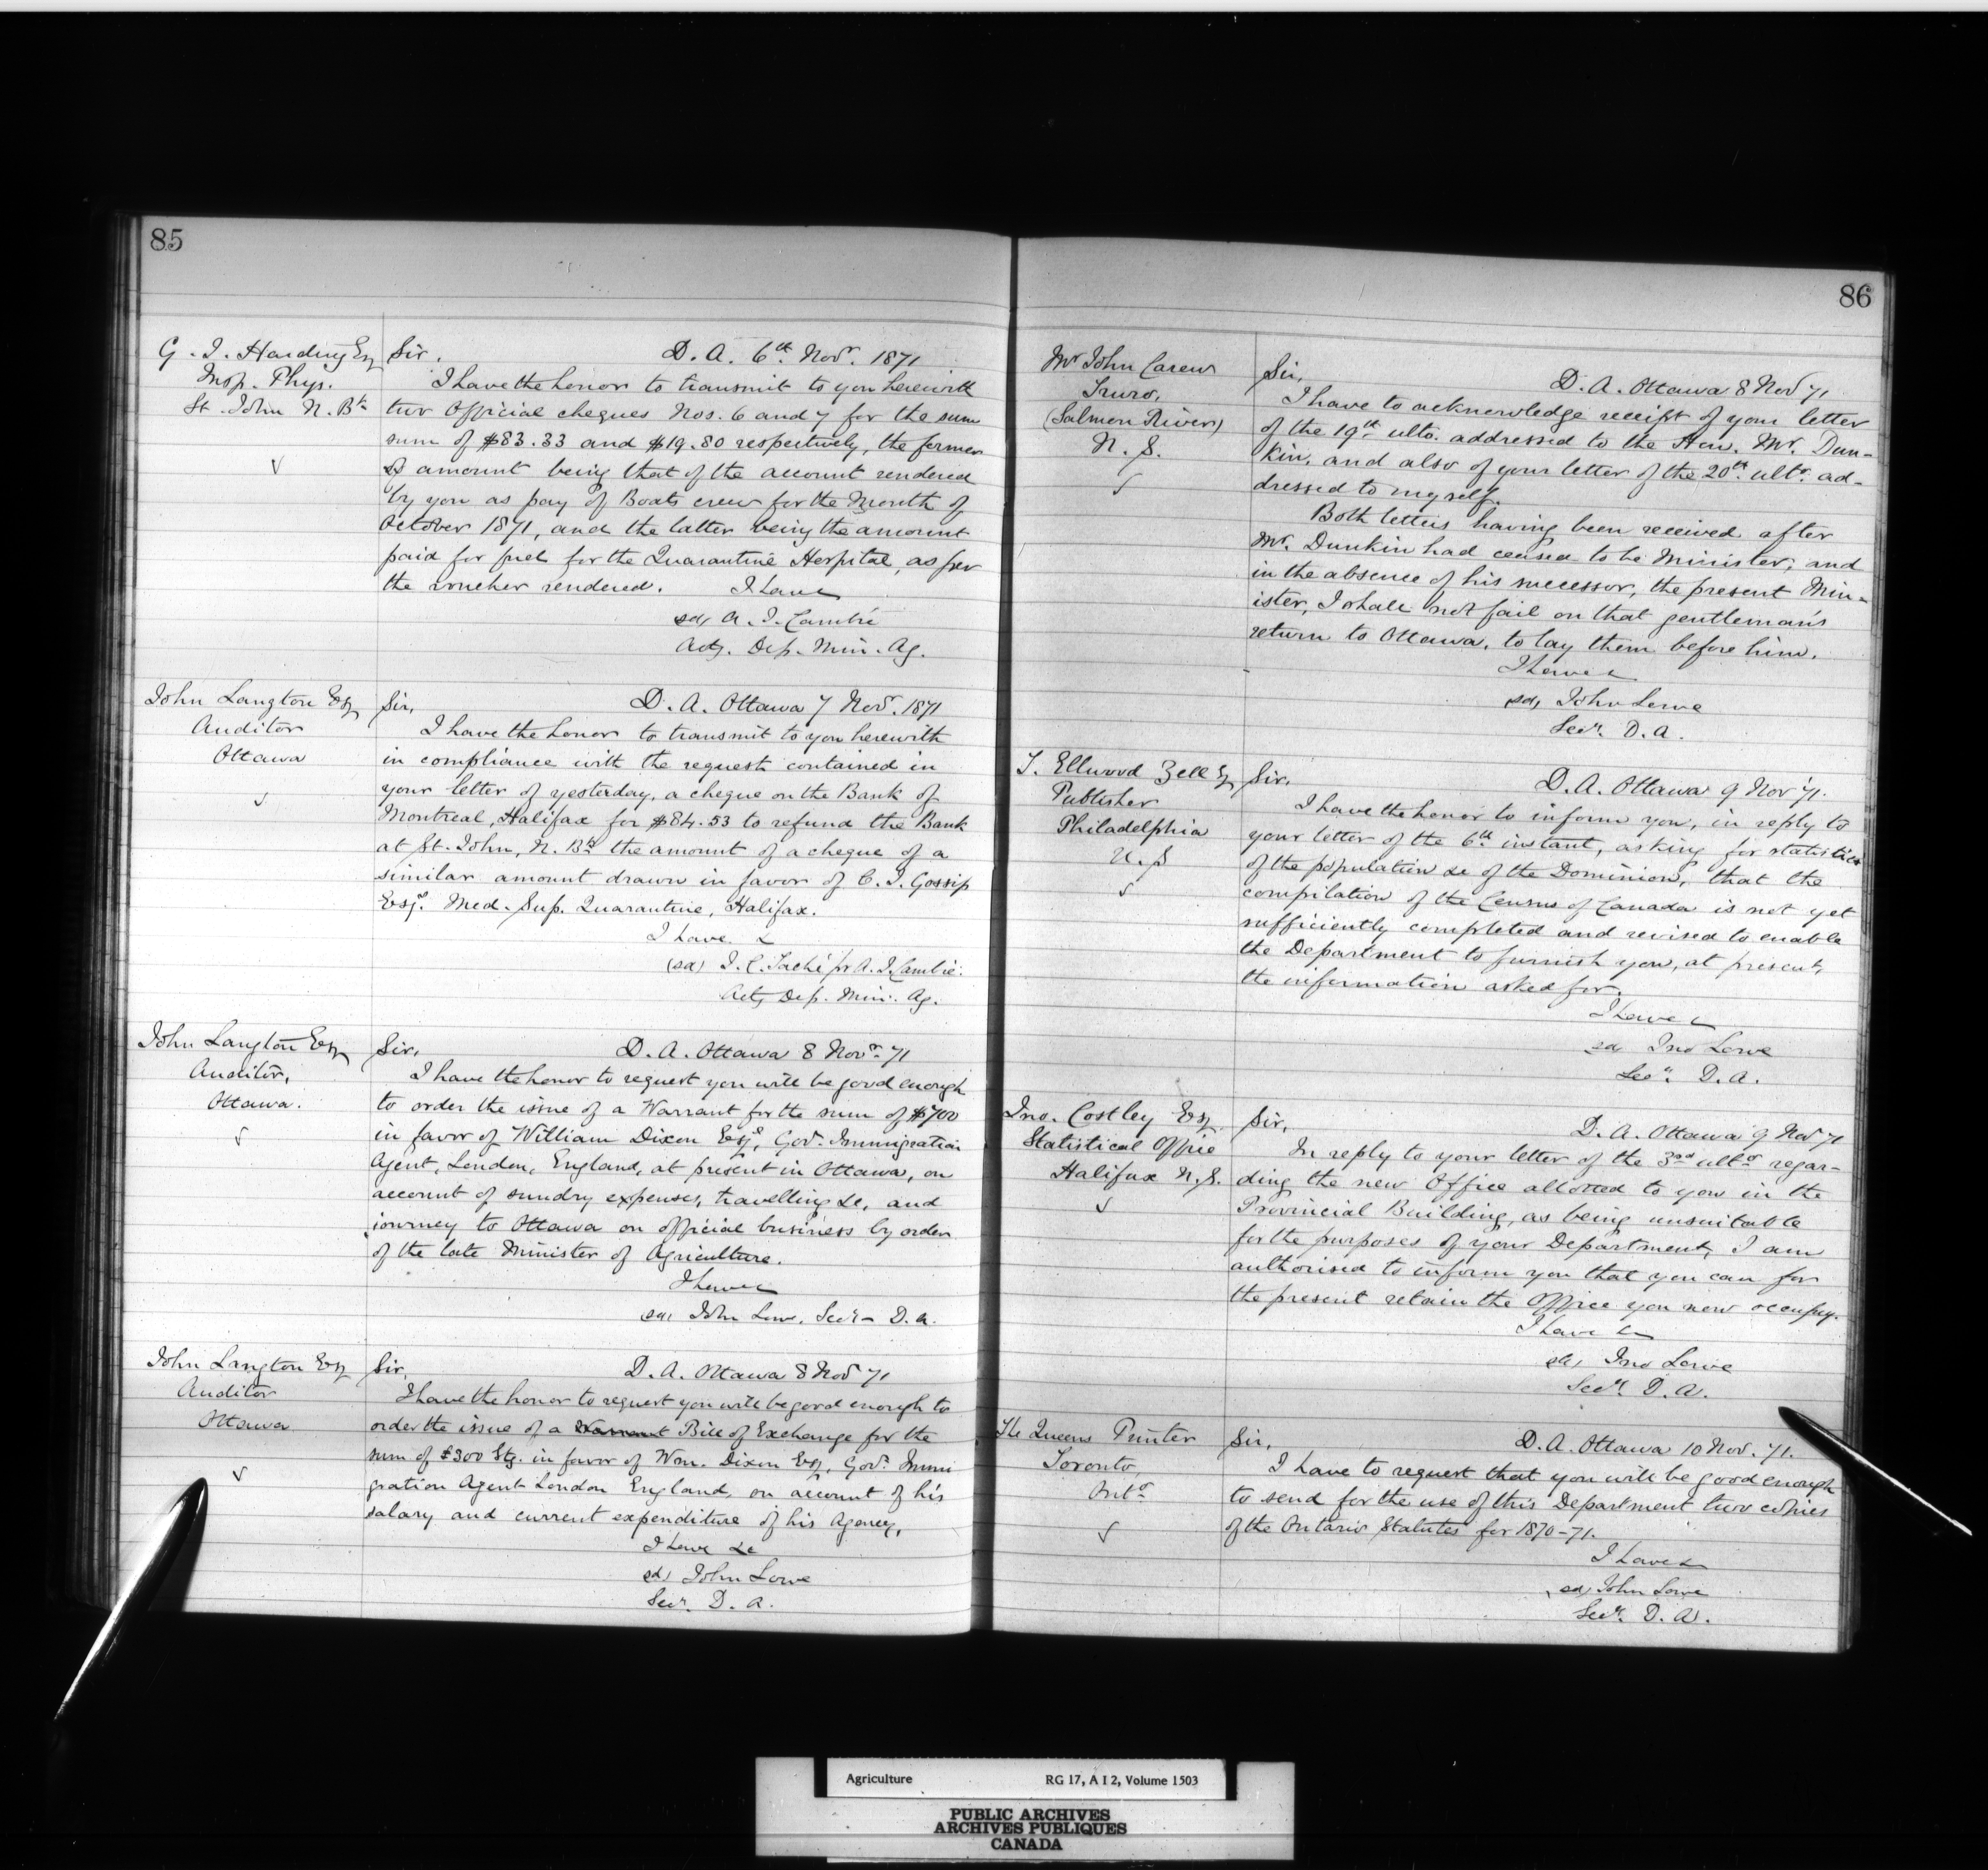 85
G. J. Harding Esq
Insp. Phys.
St. John N. Bk
Sir. D. A. 6th Novr. 1871
I have the honor to transmit to you herewith
two Official cheques Nos. 6 and 7 for the sum
sum of $83.33 and $19.80 respectively, the former
amount being that of the account rendered
by you as pay of Boats crew for the Month of
October 1871, and the latter being the amount
paid for fuel for the Quarantine Hospital, as per
the voucher rendered. I have
sd, A. J. Cambie
Actg. Dep. Min. Ag.
John Langton Esq
Auditor
Ottawa
Sir, D. A. Ottawa 7 Novr. 1871
I have the honor to transmit to you herewith
in compliance with the request contained in
your letter of yesterday, a cheque on the Bank of
Montreal, Halifax for $84.53 to refund the Bank
at St. John, N. Bk the amount of a cheque of a
similar amount drawn in favor of C. J. Gossip
Esqe. Med. Sup. Quarantine, Halifax.
I have &
(sd) J. C. Taché pr A. J. Cambie.
Actg Dep. Min. Ag.
John Langton Esq
Auditor,
Ottawa.
Sir, D. A. Ottawa 8 Novr. 71
I have the honor to request you will be good enough
to order the issue of a Warrant for the sum of $700
in favor of William Dixon Esqe, Govt. Immigration
Agent, London, England, at present in Ottawa, on
account of sundry expenses, travelling &c, and
journey to Ottawa on official business by order
of the late Minister of Agriculture.
I have &
sd, John Lowe, Secr. D. A.
John Langton Esq
Auditor
Ottawa
Sir, D. A. Ottawa 8 Nov 71
I have the honor to request you will be good enough to
order the issue of a Warrant Bill of Exchange for the
sum of $300 Stg. in favor of Wm. Dixon Esq, Govt. Immi
gration Agent London England, on account of his
salary and current expenditure of his Agency,
I have &c
sd, John Lowe
Secr. D. A.
86
Mr John Carew
Truro,
(Salmon River)
N. S.
Sir, D. A. Ottawa 8 Nov 71
I have to acknowledge receipt of your letter
of the 19th ulto. addressed to the Hon. Mr. Dun-
kin, and also of your letter of the 20th ulto. ad-
dressed to myself.
Both letters having been received after
Mr. Dunkin had ceased to be Minister, and
in the absence of his successor, the present Min-
ister, I shall not fail on that gentleman's
return to Ottawa, to lay them before him.
I have &
sd, John Lowe
Secr. D. A.
T. Ellwood Zell Esq
Publisher
Philadelphia
U. S
Sir, D. A. Ottawa 9 Nov 71.
I have the honor to inform you, in reply to
your letter of the 6th instant, asking for statistics
of the population &c of the Dominion, that the
compilation of the Census of Canada is not yet
sufficiently completed and revised to enable
the Department to furnish you, at present,
the information asked for.
I have &
sd Jno Lowe
Secr. D. A.
Jno. Costley Esq.
Statistical Office
Halifax N. S.
Sir, D. A. Ottawa 9 Nov 71
In reply to your letter of the 3rd ulto regar-
ding the new Office allotted to you in the
Provincial Building, as being unsuitable
for the purposes of your Department, I am
authorised to inform you that you can for
the present retain the Office you now occupy.
I have &
sd, Jno Lowe
Secr. D. A.
The Queens Printer
Toronto,
Onto.
Sir, D. A. Ottawa 10 Nov. 71.
I have to request that you will be good enough
to send for the use of this Department two copies
of the Ontario Statutes for 1870-71.
I have &
sd, John Lowe
Secr. D. A.
Agriculture RG 17, A I 2, Volume 1503
PUBLIC ARCHIVES
ARCHIVES PUBLIQUES
CANADA